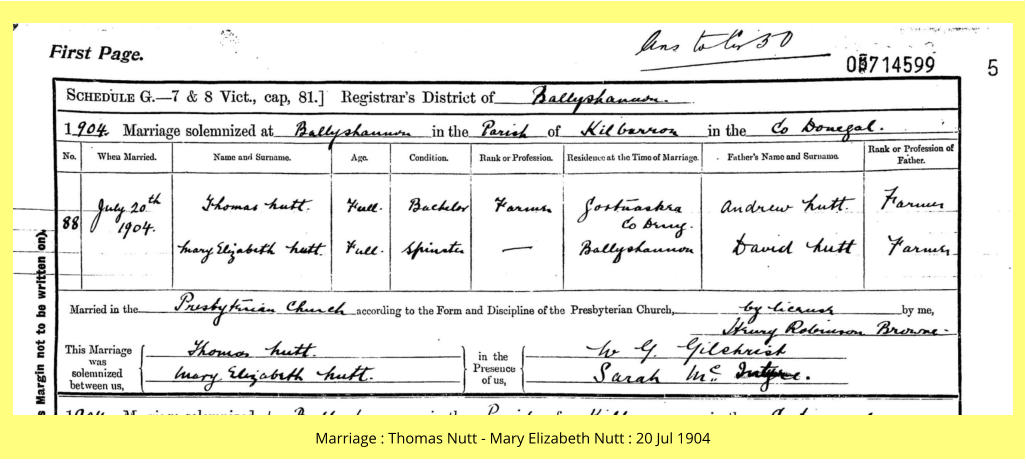 Ans to Cir 30
First Page.
05714599
5
SCHEDULE G.—7 & 8 Vict., cap, 81.] Registrar's District of Ballyshannon.
1904. Marriage solemnized at Ballyshannon in the Parish of Kilbarron in the Co Donegal.
No. When Married. Name and Surname. Age. Condition. Rank or Profession. Residence at the Time of Marriage. Father's Name and Surname. Rank or Profession of Father.
88 July 20th 1904. Thomas Nutt. Full. Bachelor Farmer Co Derry. Andrew Nutt. Farmer
Mary Elizabeth Nutt. Full. Spinster — Ballyshannon David Nutt Farmer
Married in the Presbyterian Church according to the Form and Discipline of the Presbyterian Church, by license by me,
Henry Robinson Browne
This Marriage was solemnized between us, Thomas Nutt. in the Presence of us, W G Gilchrist
Mary Elizabeth Nutt. Sarah Mc Intyre.
s Margin not to be written on).
Marriage : Thomas Nutt - Mary Elizabeth Nutt : 20 Jul 1904